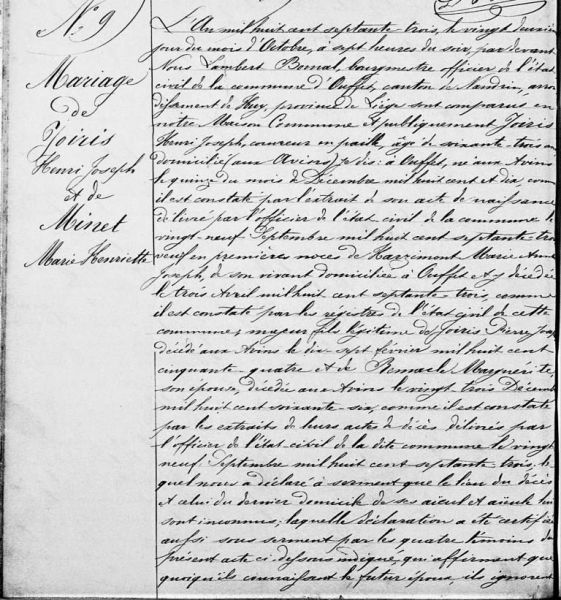 N° 9
Mariage
de
Joiris
Henri Joseph
et de
Minet
Marie Henriette
L'An mil huit cent septante-trois, le vingt deuxième
jour du mois d'Octobre, à sept heures du soir, par devant
Nous Lambert Bomal, bourgmestre officier de l'état
civil de la commune d'Ouffet, canton de Nandrin, arron
dissement de Huy, province de Liége sont comparus en
notre Maison Commune et publiquement Joiris
Henri Joseph, couvreur en paille, âgé de soixante trois ans
domicilié (aux Avins) je dis: à Ouffet, né aux Avins
le quinze du mois de Décembre mil huit cent et dix, comme
il est constaté par l'extrait de son acte de naissance
délivré par l'officier de l'état civil de la commune le
vingt-neuf Septembre mil huit cent septante-trois
veuf en premières noces de Harzimont Marie Anne
Joseph, de son vivant domiciliée à Ouffet et y décédée
le trois Avril mil huit cent septante trois, comme
il est constaté par les registre de l'état civil de cette
commune, majeur fils légitime de Joiris Pierre Joseph
décédé aux Avins le dix sept février mil huit cent
cinquante quatre et de Remacle Marguerite,
son épouse, décédée aux Avins le vingt trois Décembre
mil huit cent soixante-six, comme il est constaté
par les extraits de leurs actes de décès délivrés par
l'officier de l'état civil de la dite commune le vingt
neuf Septembre mil huit cent septante trois, le
quel nous a déclaré à serment que le lieu du décès
et celui du dernier domicile de ses aïeul et aïeule lui
sont inconnus; laquelle déclaration a été certifiée
aussi sous serment par les quatre témoins du
présent acte ci-dessous indiqué, qui affirment que
quoiqu'ils connaissent le futur époux, ils ignorent